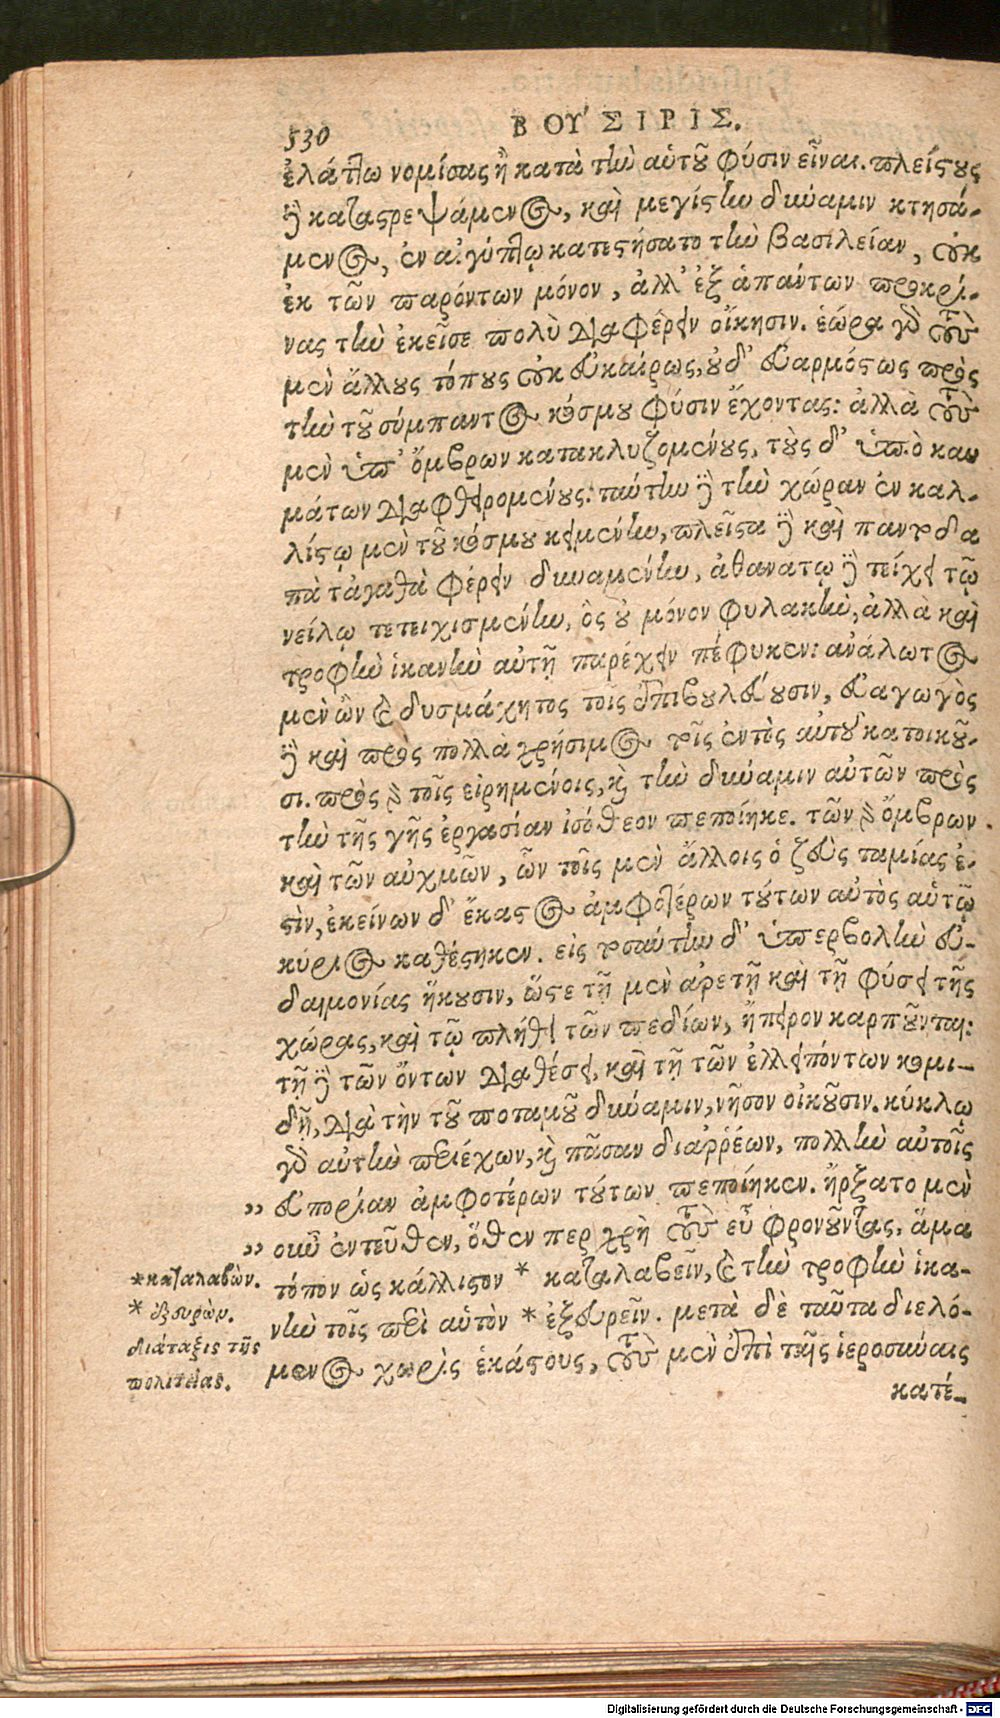 530
ΒΟΎΣΙΡΙΣ.
ἐλάττω νομίσας ἢ κατὰ τὴν αὑτοῦ φύσιν εἶναι. πλείστους
δὲ καταστρεψάμενος, καὶ μεγίστην δύναμιν κτησά-
μενος, ἐν αἰγύπτῳ κατεστήσατο τὴν βασιλείαν, οὐκ
ἐκ τῶν παρόντων μόνον, ἀλλ' ἐξ ἁπάντων προκρί-
νας τὴν ἐκεῖσε πολὺ διαφέρειν οἴκησιν. ἑώρα γὸ τοὺς
μὲν ἄλλους τόπους οὐκ εὐκαίρως, οὐδ' εὐαρμόστως πρὸς
τὴν τοῦ σύμπαντος κόσμου φύσιν ἔχοντας: ἀλλὰ τοὺς
μὲν ὑπ' ὄμβρων κατακλυζομένους, τοὺς δ' ὑπὸ καυ
μάτων διαφθειρομένους: ταύτην δὲ τὴν χώραν ἐν καλ-
λίστῳ μὲν τοῦ κόσμου κειμένην, πλεῖστα δὲ καὶ παντοδα
πὰ τἀγαθὰ φέρειν δυναμένην, ἀθανάτῳ δὲ τείχει τῷ
νείλῳ τετειχισμένην, ὃς οὐ μόνον φυλακὴν, ἀλλὰ καὶ
τροφὴν ἱκανὴν αὐτῇ παρέχειν πέφυκεν: ἀνάλωτος
μὲν ὢν καὶ δυσμάχητος τοῖς ἐπιβουλεύουσιν, εὐαγωγὸς
δὲ καὶ πρὸς πολλὰ χρήσιμος τοῖς ἐντὸς αὐτοῦ κατοικοῦ-
σι. πρὸς γὰρ τοῖς εἰρημένοις, καὶ τὴν δύναμιν αὐτῶν πρὸς
τὴν τῆς γῆς ἐργασίαν ἰσόθεον πεποίηκε. τῶν γὰρ ὄμβρων
καὶ τῶν αὐχμῶν, ὧν τοῖς μὲν ἄλλοις ὁ ζεὺς ταμίας ἐ-
στὶν, ἐκείνων δ' ἕκαστος ἀμφοτέρων τούτων αὐτὸς αὑτῷ
κύριος καθέστηκεν. εἰς τοσαύτην δ' ὑπερβολὴν εὐ-
δαιμονίας ἥκουσιν, ὥστε τῇ μὲν ἀρετῇ καὶ τῇ φύσει τῆς
χώρας, καὶ τῷ πλήθει τῶν πεδίων, ἤπειρον καρποῦνται:
τῇ δὲ τῶν ὄντων διαθέσει, καὶ τῇ τῶν ἐλλειπόντων κομι-
δῇ, διὰ τὴν τοῦ ποταμοῦ δύναμιν, νῆσον οἰκοῦσιν. κύκλῳ
γὸ αὐτὴν περιέχων, καὶ πᾶσαν διαῤῥέων, πολλὴν αὐτοῖς
„ εὐπορίαν ἀμφοτέρων τούτων πεποίηκεν. ἤρξατο μὲν
„ οὖν ἐντεῦθεν, ὅθεν περ χρὴ τοὺς εὖ φρονοῦντας, ἅμα
τόπον ὡς κάλλιστον * καταλαβεῖν, καὶ τὴν τροφὴν ἱκα-
νὴν τοῖς περὶ αὑτὸν * ἐξευρεῖν. μετὰ δὲ ταῦτα διελό-
μενος χωρὶς ἑκάστους, τοὺς μὲν ἐπὶ ταῖς ἱεροσύναις
κατέ-
*καταλαβὼν.
* ἐξευρὼν.
διάταξις τῆς
πολιτείας.
Digitalisierung gefördert durch die Deutsche Forschungsgemeinschaft - DFG